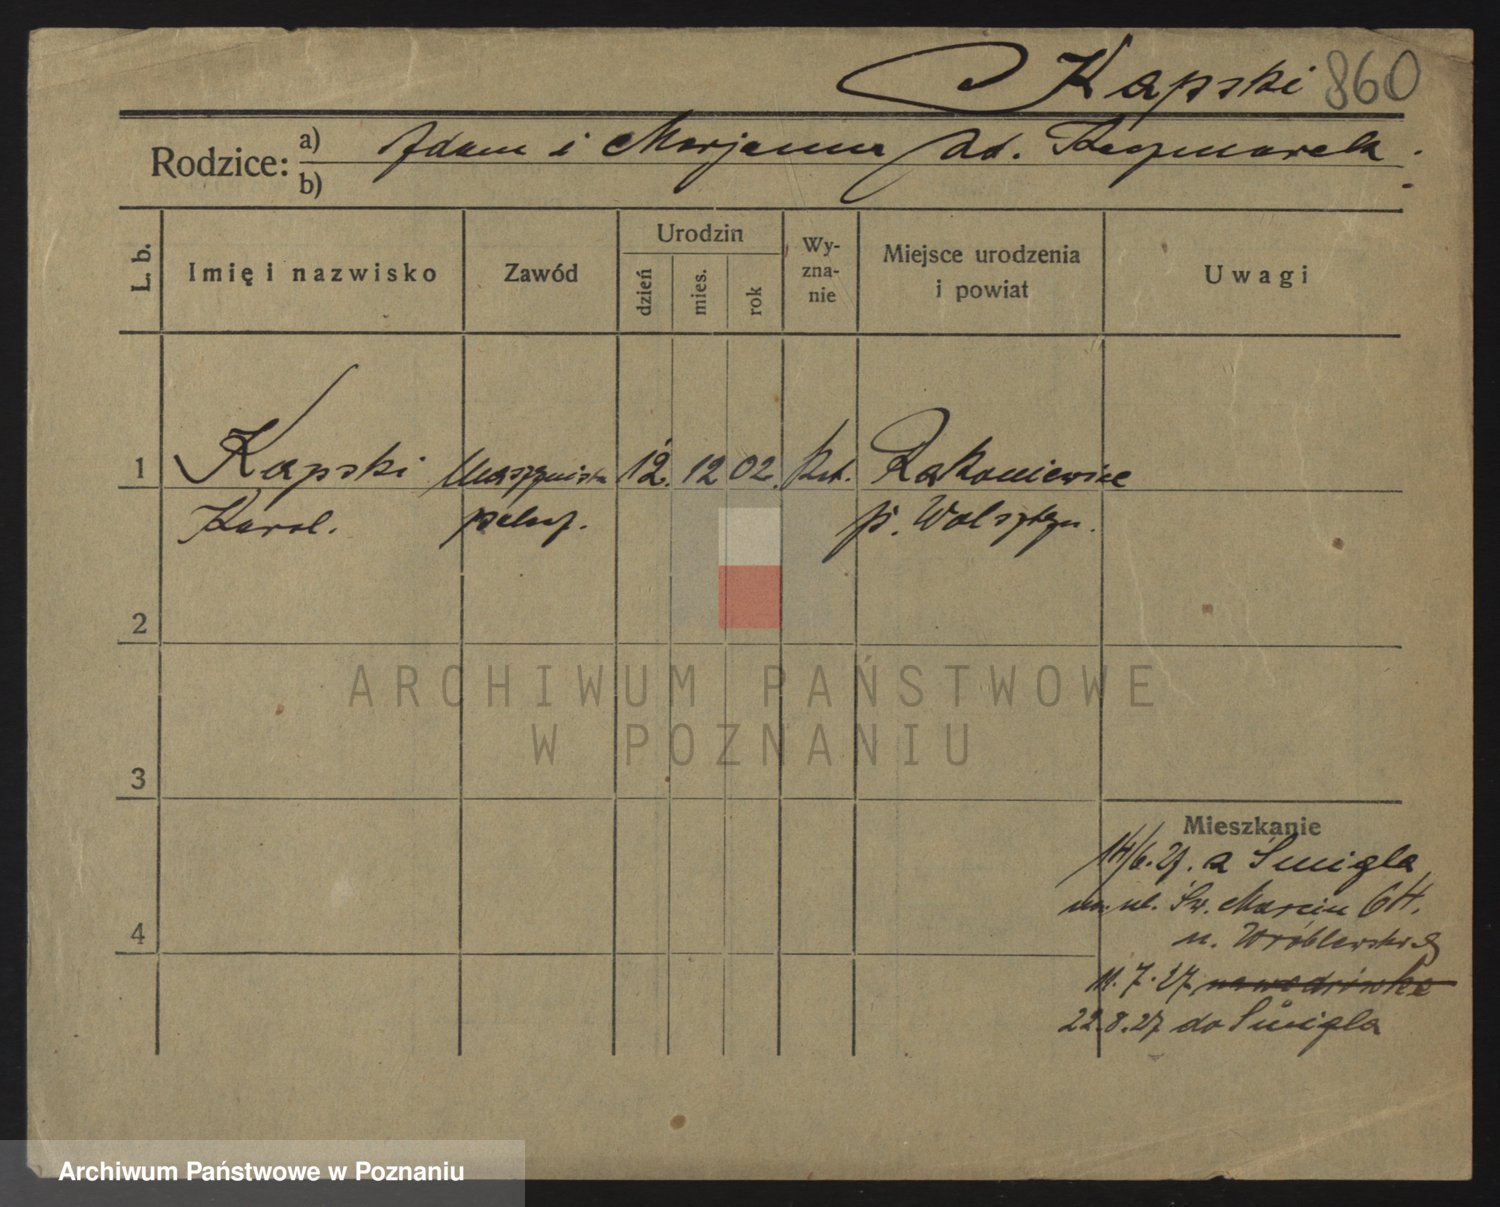 Kapski 860
Rodzice: a) Adam i Marjanna zd. Kaczmarek.
b)
L. b. Imię i nazwisko Zawód Urodzin dzień mies. rok Wyzna-nie Miejsce urodzenia i powiat Uwagi
1 Kapski Maszynista 12. 12 02. kat. Rakoniewice
Karol. p. Wolsztyn.
2
ARCHIWUM PAŃSTWOWE
W POZNANIU
3
Mieszkanie
14/6.27. z Śmigla
ul. Św. Marcin 64.
4
u. Wróblewskiej
11.7.27 na wędrówkę
22.8.27 do Śmigla
Archiwum Państwowe w Poznaniu